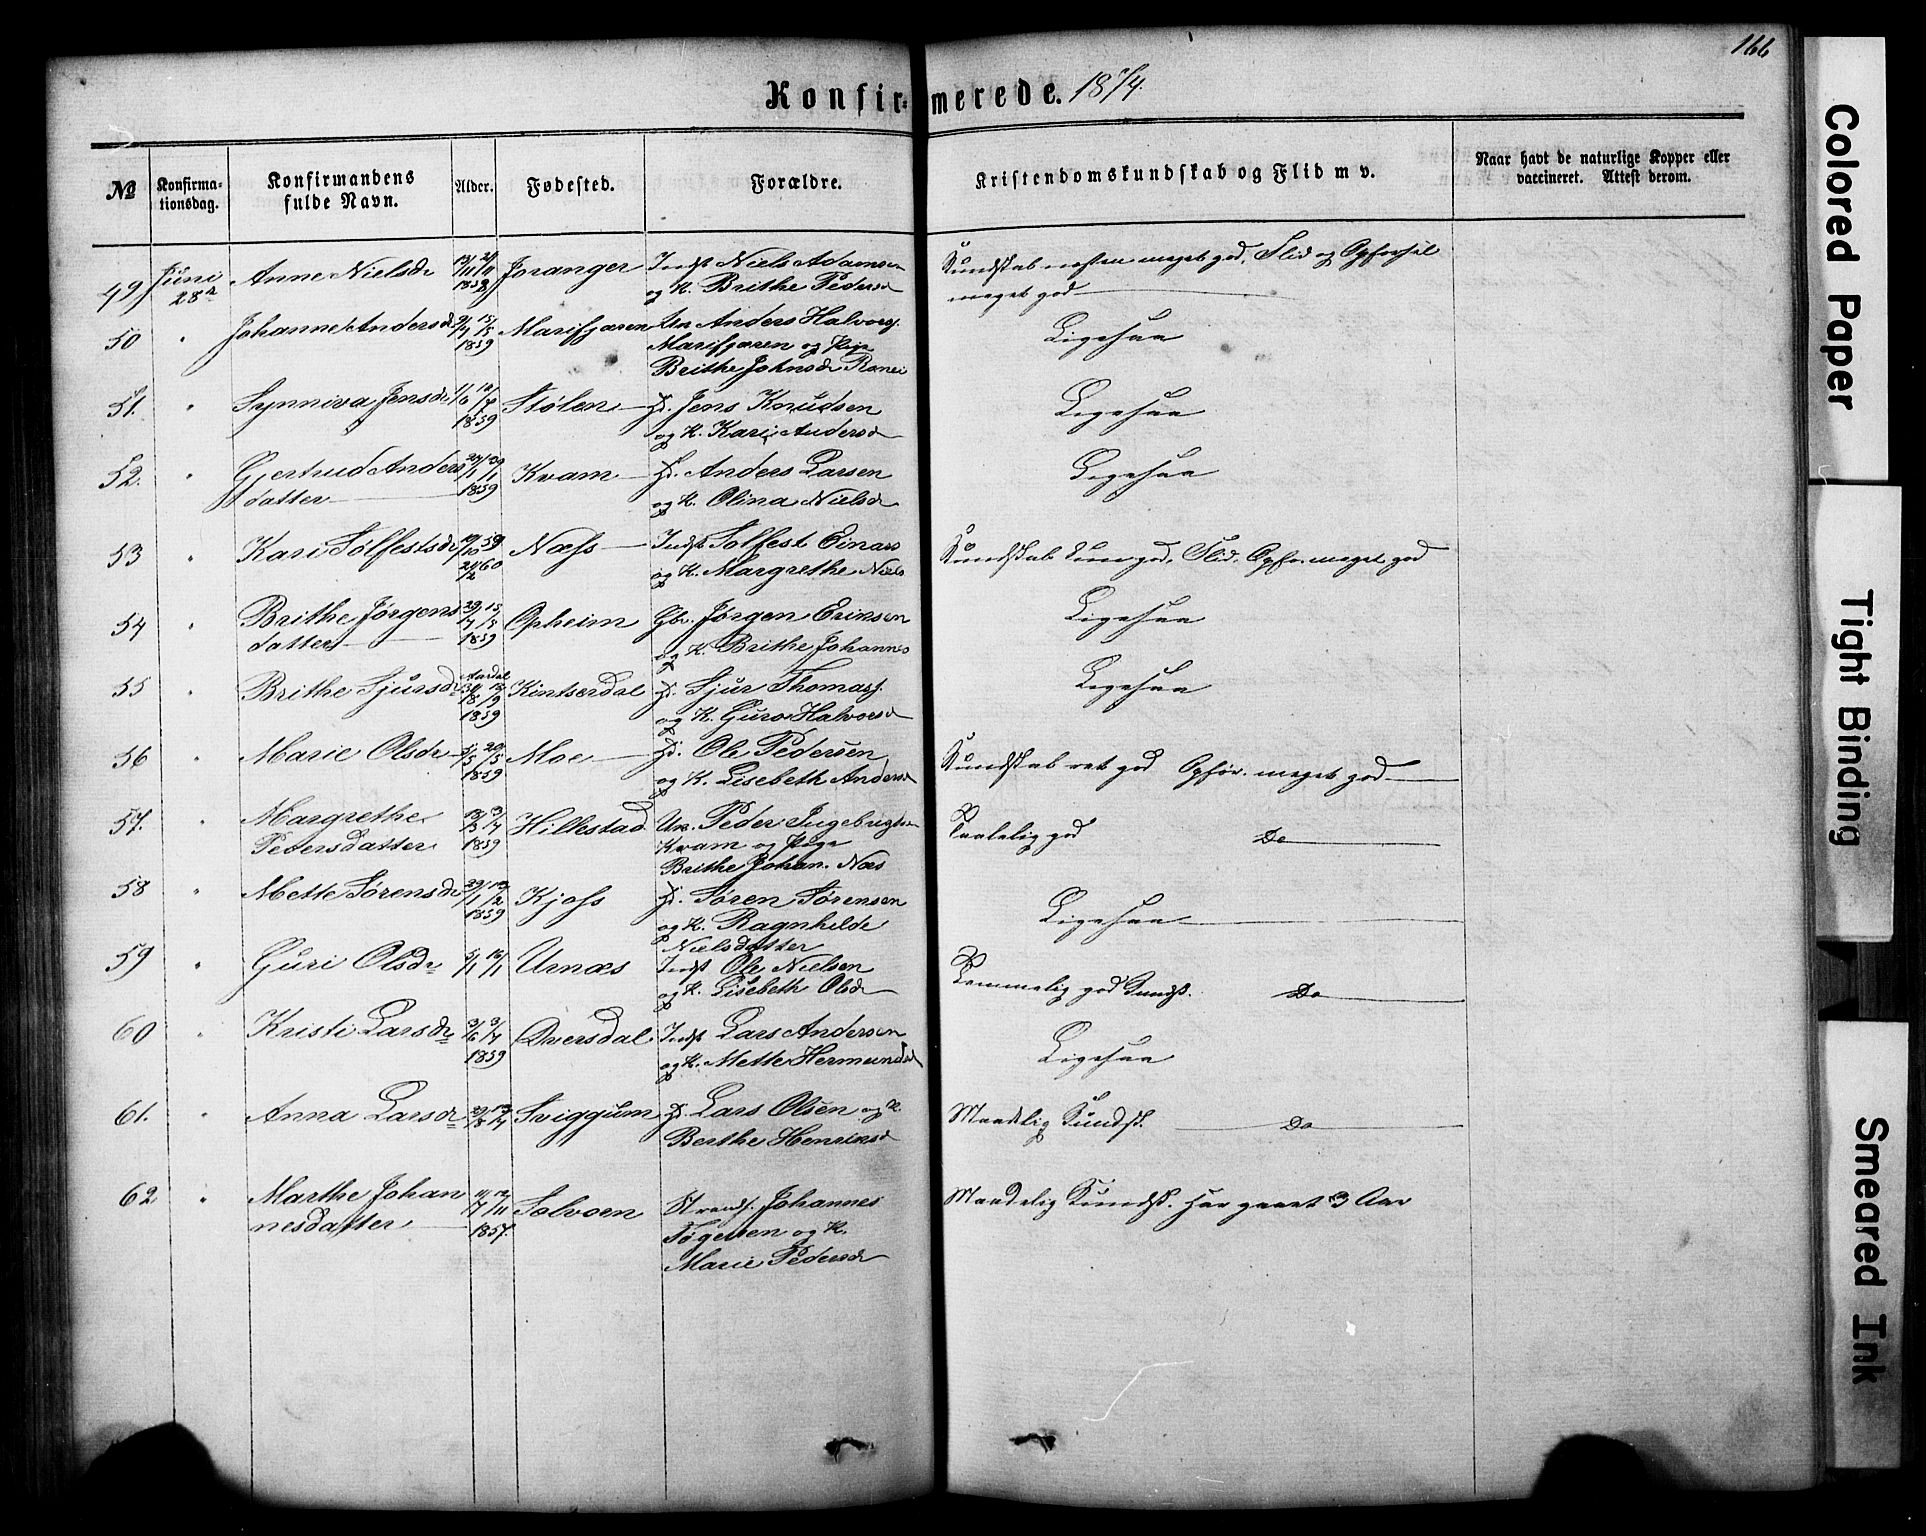 166
Konfirmerede. 1874.
No
Konfirma-
tionsdag.
Konfirmandens
fulde Navn.
Alder.
Fødested.
Forældre.
Kristendomskundskab og Flid m v.
Naar havt de naturlige Kopper eller
vaccineret. Attest derom.
49 Juni 28de Anne Nielsdr 1858 Joranger Indst Niels Adamsen
og K. Brithe Pedersd
Kundskab næsten meget god, Flid og Opførsel
meget god
50 " Johanne Andersdr 1859 Marifjæren Un Anders Halvors.
Marifjæren og Pige
Brithe Johnsdr
Ligesaa
51. " Synniva Jensdr 1859 Stølen Hd. Jens Knudsen
og K. Kari Andersd
Ligesaa
52. " Gjertrud Anders
datter 1859 Kvam Hd. Anders Larsen
og K. Olina Nielsdr
Ligesaa
53 " Kari Sølfestsdr Næss Indst Sølfest Einars
og K. Margrethe Niels
Kundskab god, Flid, Opfør. meget god
54 " Brithe Jørgens
datter 1859 Opheim Gbr. Jørgen Eriksen
og K. Brithe Johannes
Ligesaa
55 " Brithe Sjursdr Aardal 1859 Kintserdal Hd. Sjur Thomas.
og K. Guro Halvorsd
Ligesaa
56 " Marie Olsdr 1859 Moe Hd. Ole Pedersen
og K. Lisebeth Andersd
Kundskab ret god Opfør. meget god
57. " Margrethe
Pedersdatter 1859 Hillestad Un. Peder Ingebrigtsen
Kvam og Pige
Brithe Johan. Næs
Taalelig god Do
58 " Mette Sørensdr 1859 Kjoss Hd. Søren Sørensen
og K. Ragnhilde
Nielsdatter
Ligesaa
59 " Guri Olsdr Urnæs Indst Ole Nielsen
og K. Lisebeth Olsdr
Temmelig god Kundsk. Do
60 " Kristi Larsdr 1859 Dversdal Indst Lars Andersen
og K. Mette Hermundsd
Ligesaa
61. " Anna Larsdr Sviggum Hd. Lars Olsen og K.
Berthe Henriksd
Maadelig Kundsk. Do
62 " Marthe Johan
nesdatter 1857. Solvoen Strands. Johannes
Tøgersen og K.
Marie Pedersdr
Maadelig Kundsk. Har gaaet 3 Aar
Colored Paper
Tight Binding
Smeared Ink